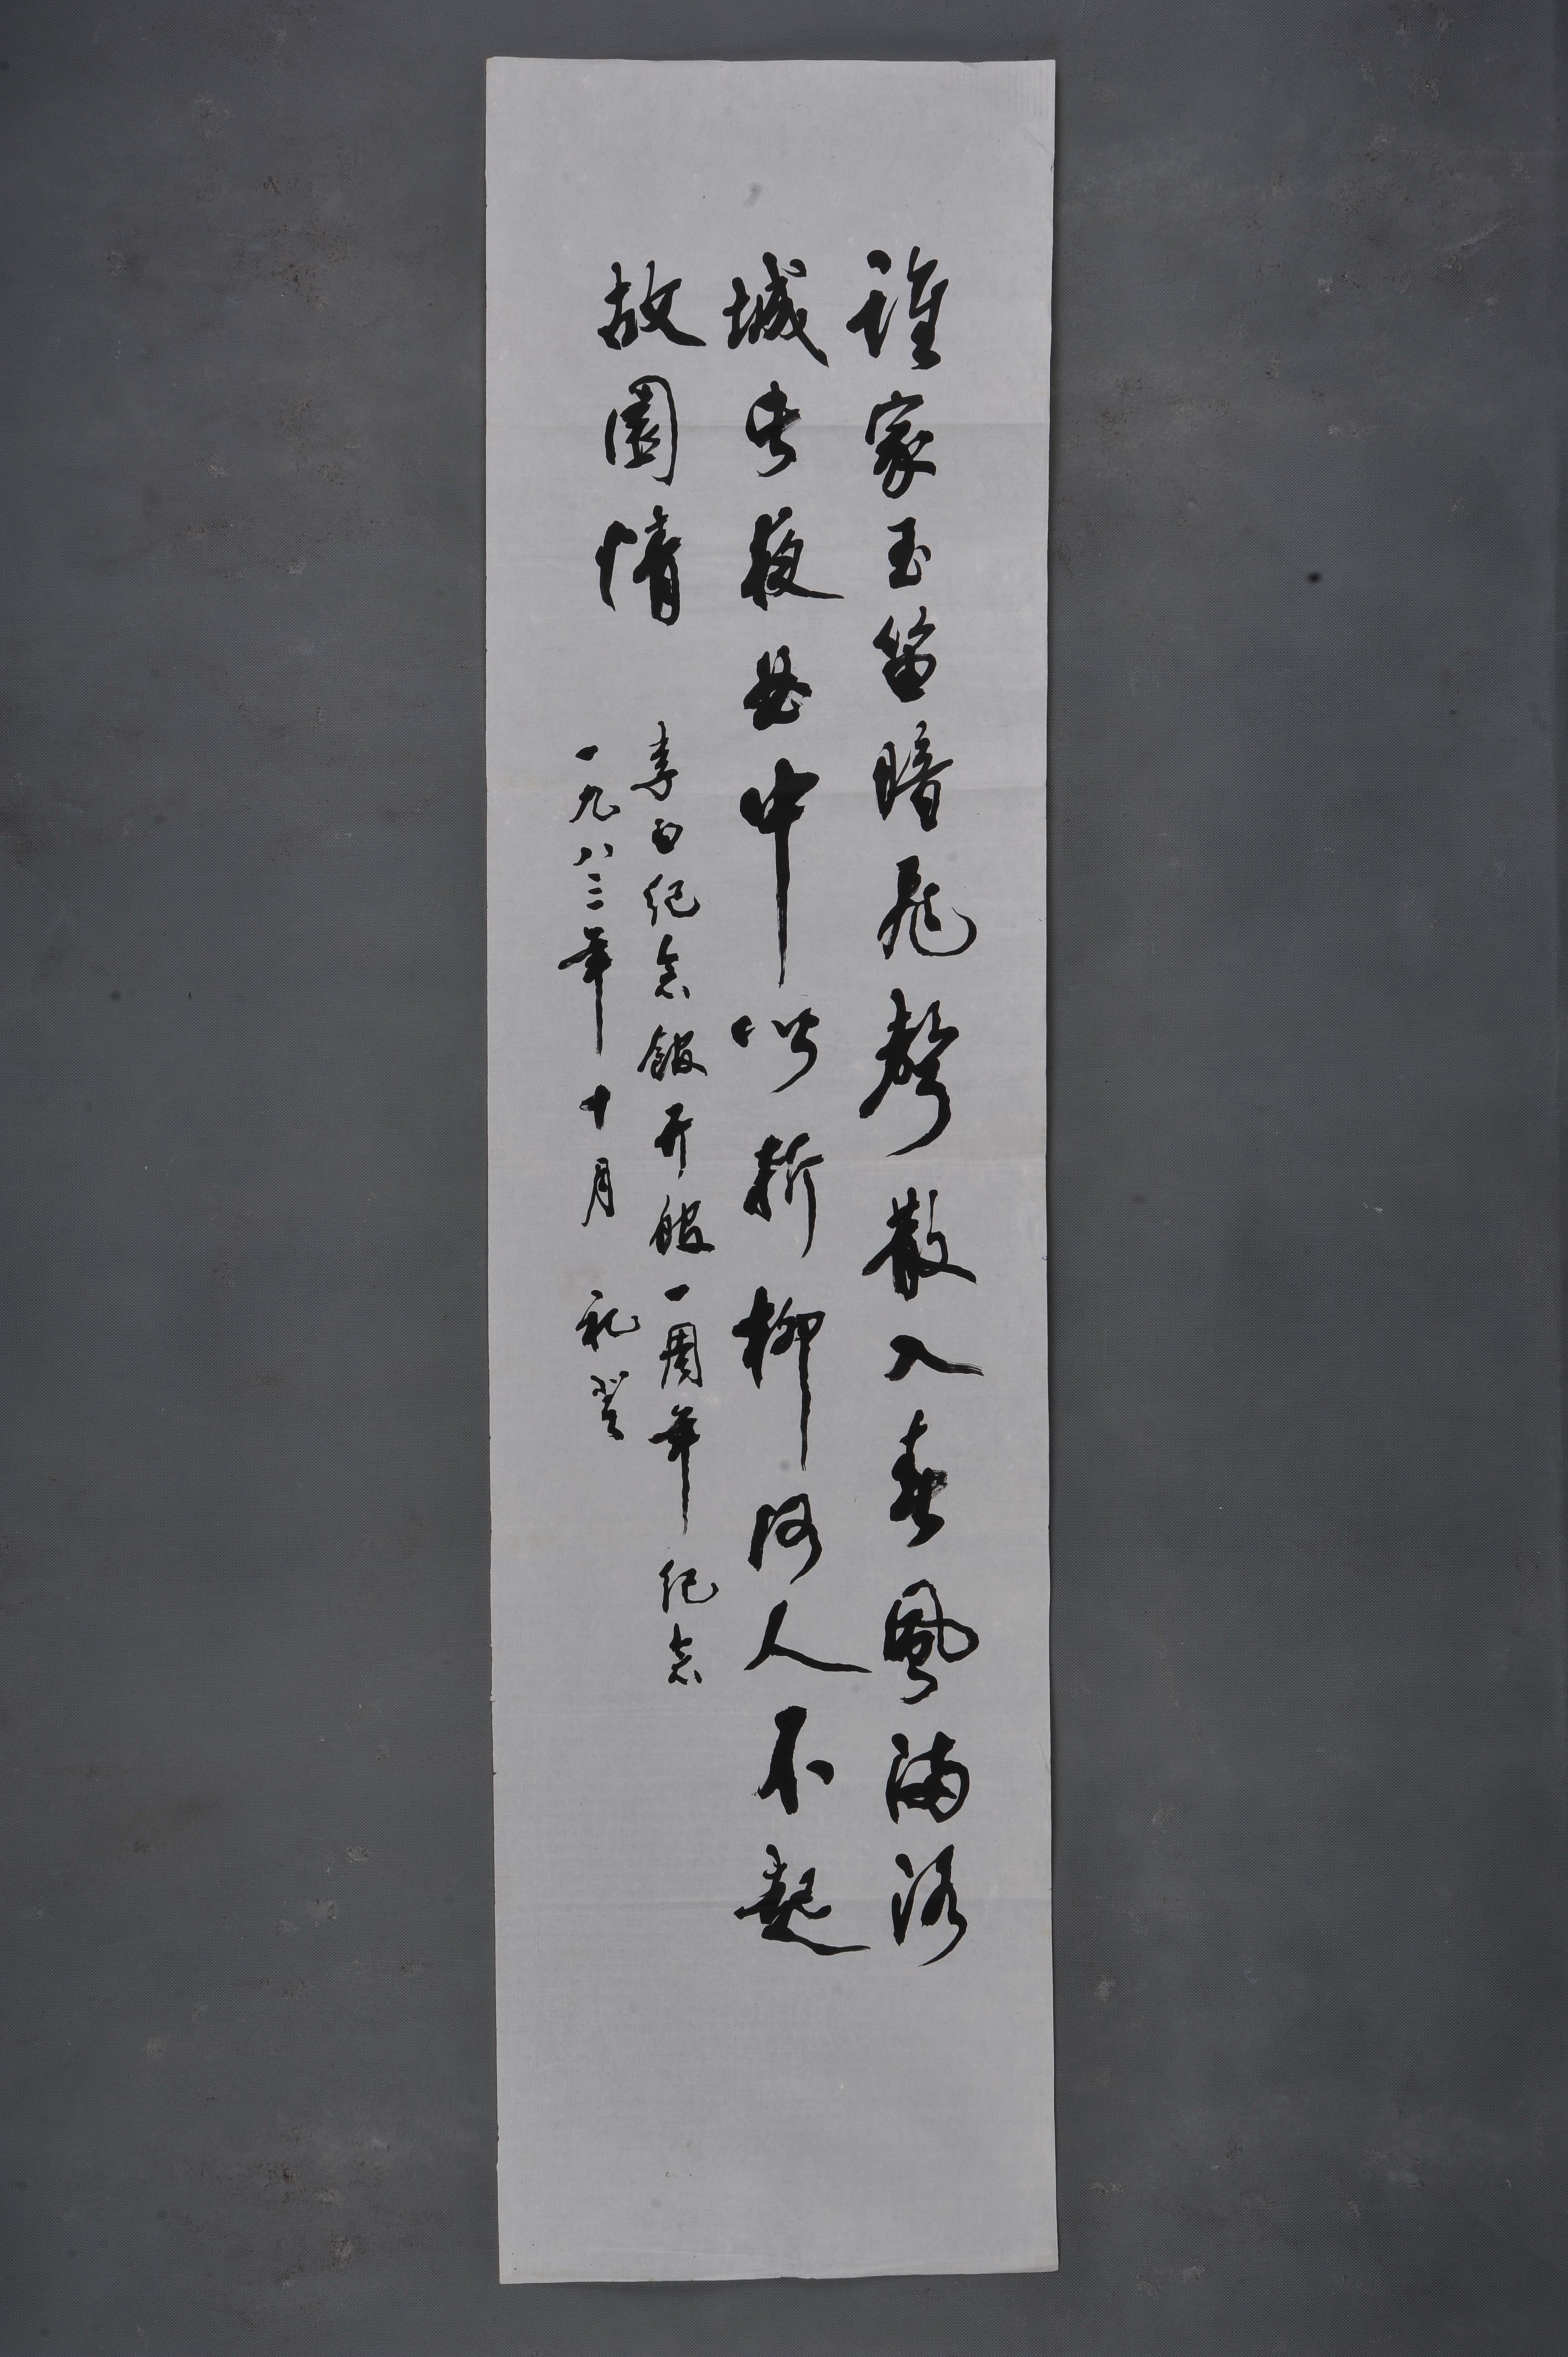 誰家玉笛暗飛聲散入春風滿洛
城此夜曲中聞折柳何人不起
故園情
李白纪念館开館一周年纪念
一九八三年十月 礼